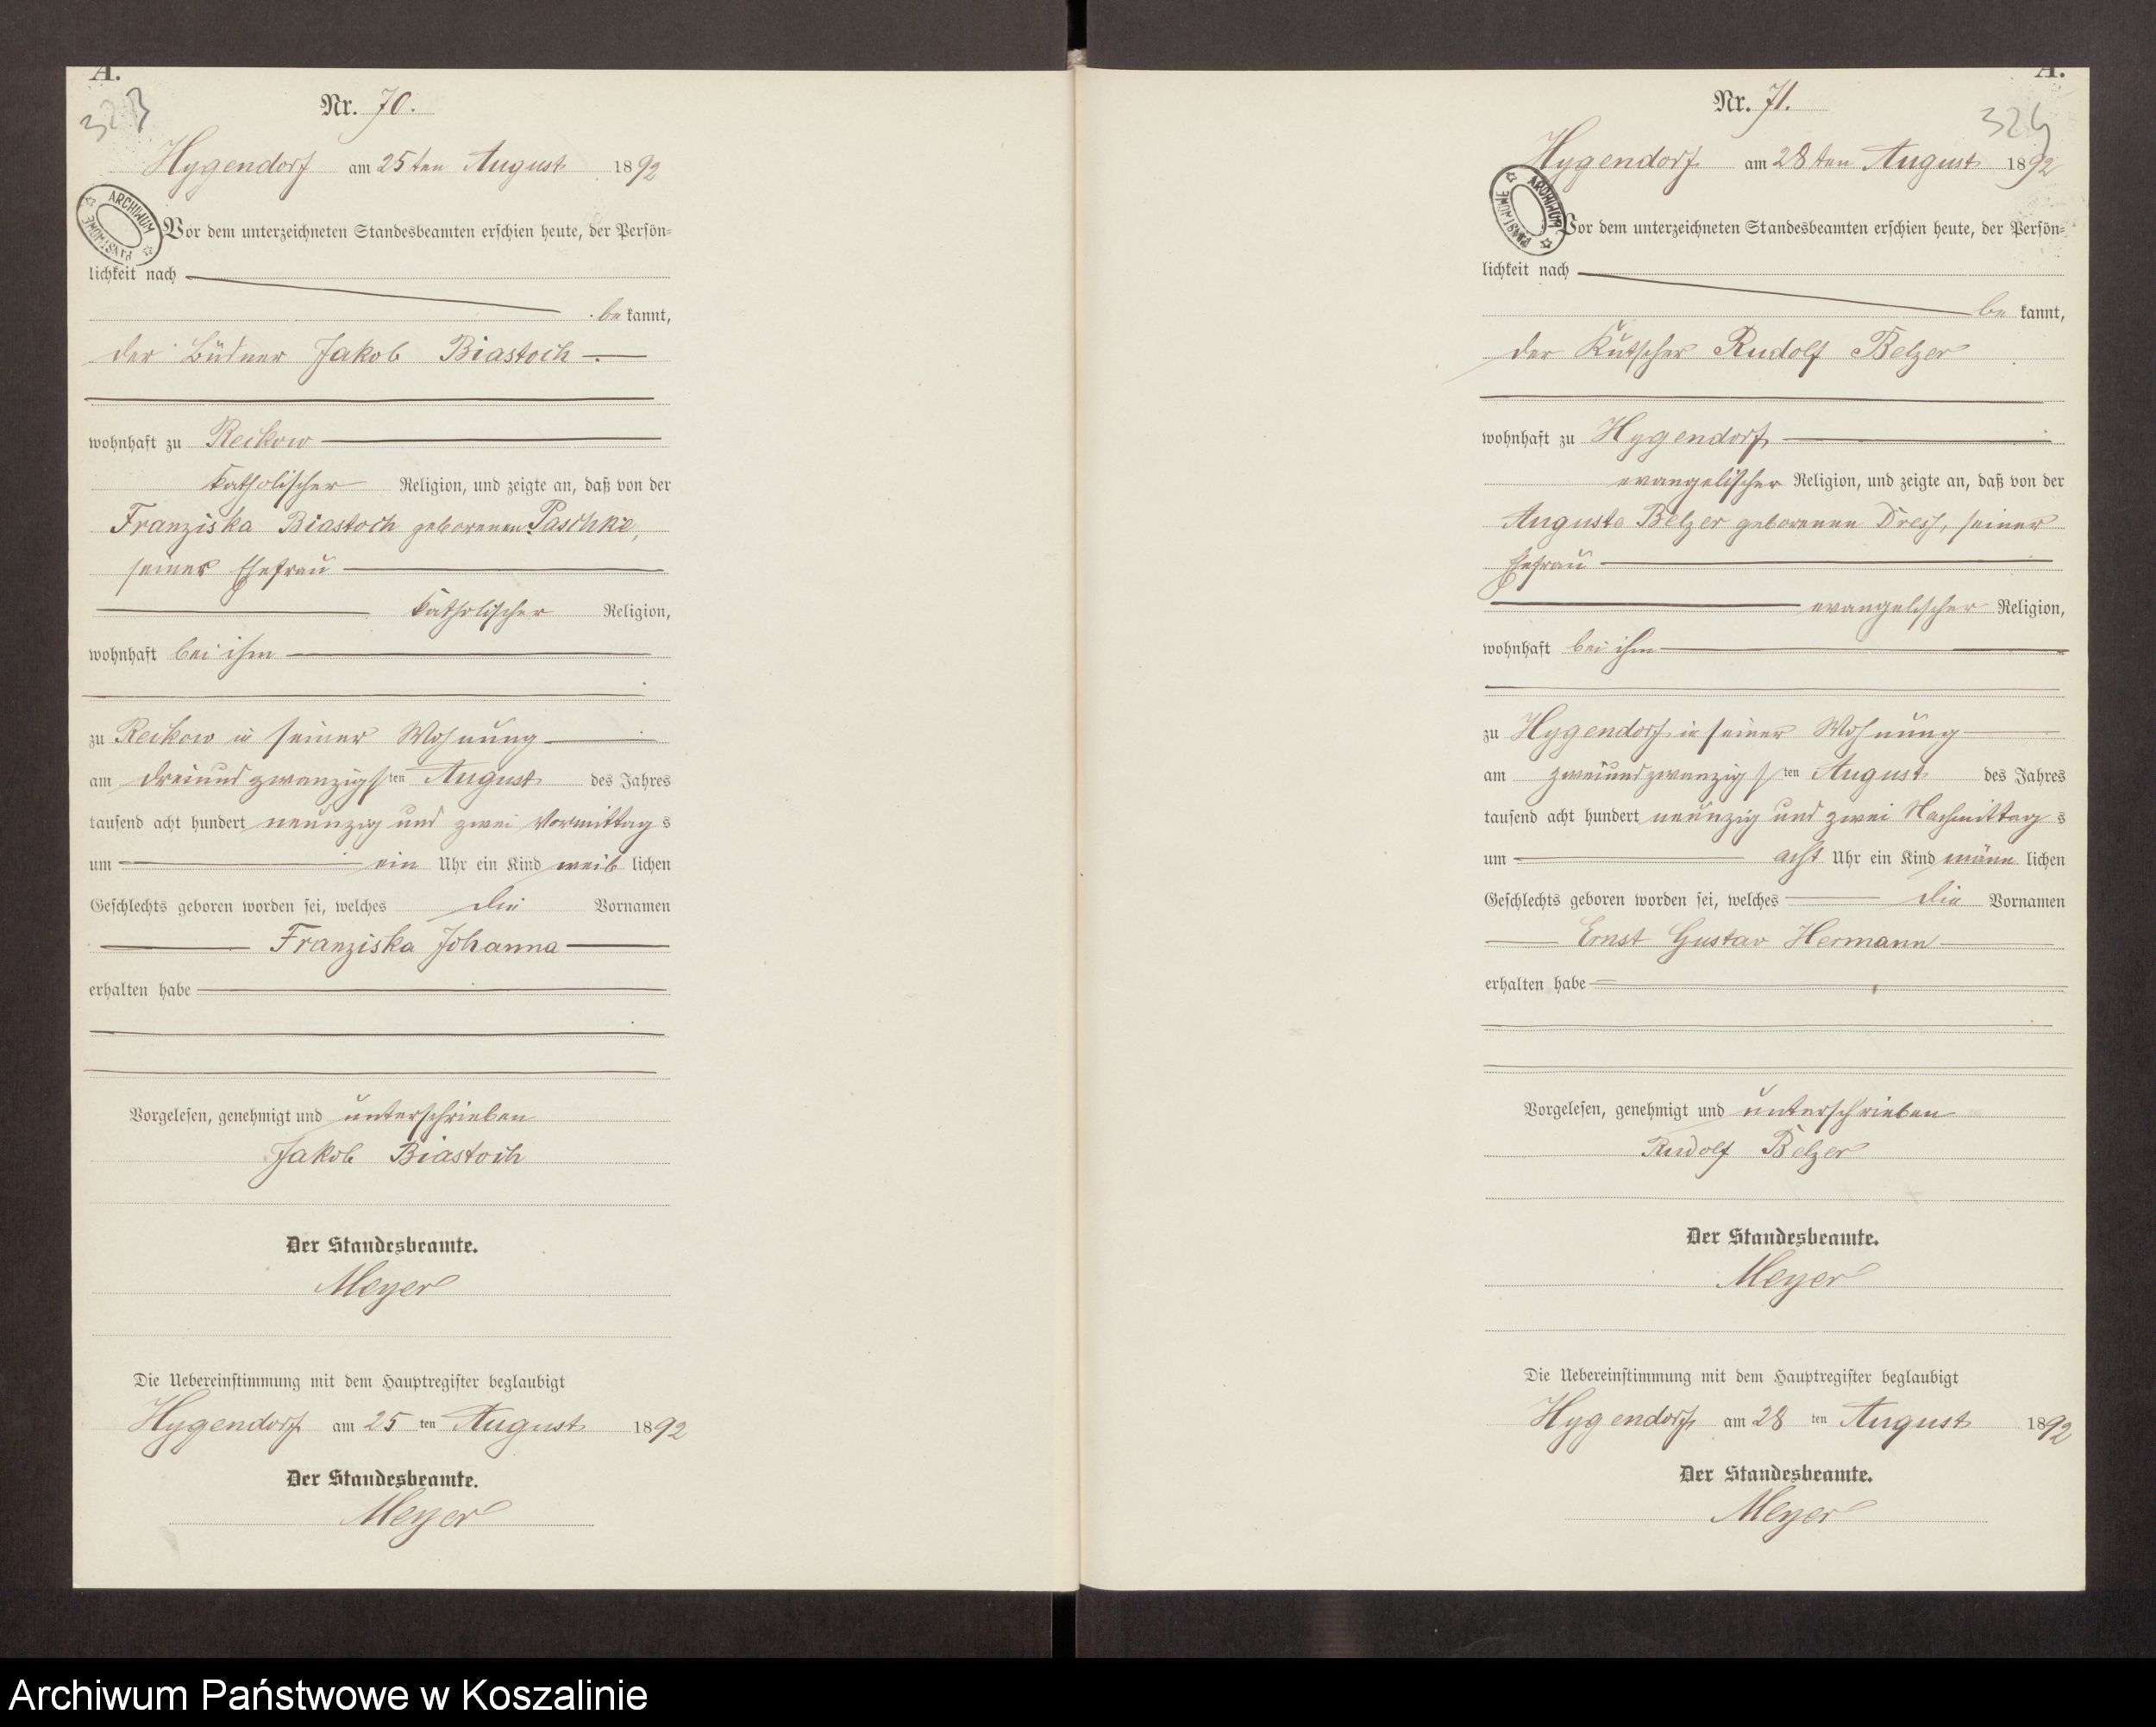 A.
323
Nr. 70.
Hygendorf am 25ten August 1892
ARCHIWUM PAŃSTWOWE
Vor dem unterzeichneten Standesbeamten erschien heute, der Persön-
lichkeit nach
be kannt,
der Büdner Jakob Biastoch
wohnhaft zu Reckow
katholischer Religion, und zeigte an, daß von der
Franziska Biastoch geborenen Paschke,
seiner Ehefrau
katholischer Religion,
wohnhaft bei ihm
zu Reckow in seiner Wohnung
am dreiundzwanzigsten August des Jahres
tausend acht hundert neunzig und zwei Vormittag s
um ein Uhr ein Kind weib lichen
Geschlechts geboren worden sei, welches die Vornamen
Franziska Johanna
erhalten habe
Vorgelesen, genehmigt und unterschrieben
Jakob Biastoch
Der Standesbeamte.
Meyer
Die Uebereinstimmung mit dem Hauptregister beglaubigt
Hygendorf am 25 ten August 1892
Der Standesbeamte.
Meyer
A.
324
Nr. 71.
Hygendorf am 28ten August 1892
ARCHIWUM PAŃSTWOWE
Vor dem unterzeichneten Standesbeamten erschien heute, der Persön-
lichkeit nach
be kannt,
der Kutscher Rudolf Belzer
wohnhaft zu Hygendorf
evangelischer Religion, und zeigte an, daß von der
Auguste Belzer geborenen Dresf, seiner
Ehefrau
evangelischer Religion,
wohnhaft bei ihm
zu Hygendorf in seiner Wohnung
am zweiundzwanzigsten August des Jahres
tausend acht hundert neunzig und zwei Nachmittag s
um acht Uhr ein Kind männ lichen
Geschlechts geboren worden sei, welches die Vornamen
Ernst Gustav Hermann
erhalten habe
Vorgelesen, genehmigt und unterschrieben
Rudolf Belzer
Der Standesbeamte.
Meyer
Die Uebereinstimmung mit dem Hauptregister beglaubigt
Hygendorf am 28 ten August 1892
Der Standesbeamte.
Meyer
Archiwum Państwowe w Koszalinie